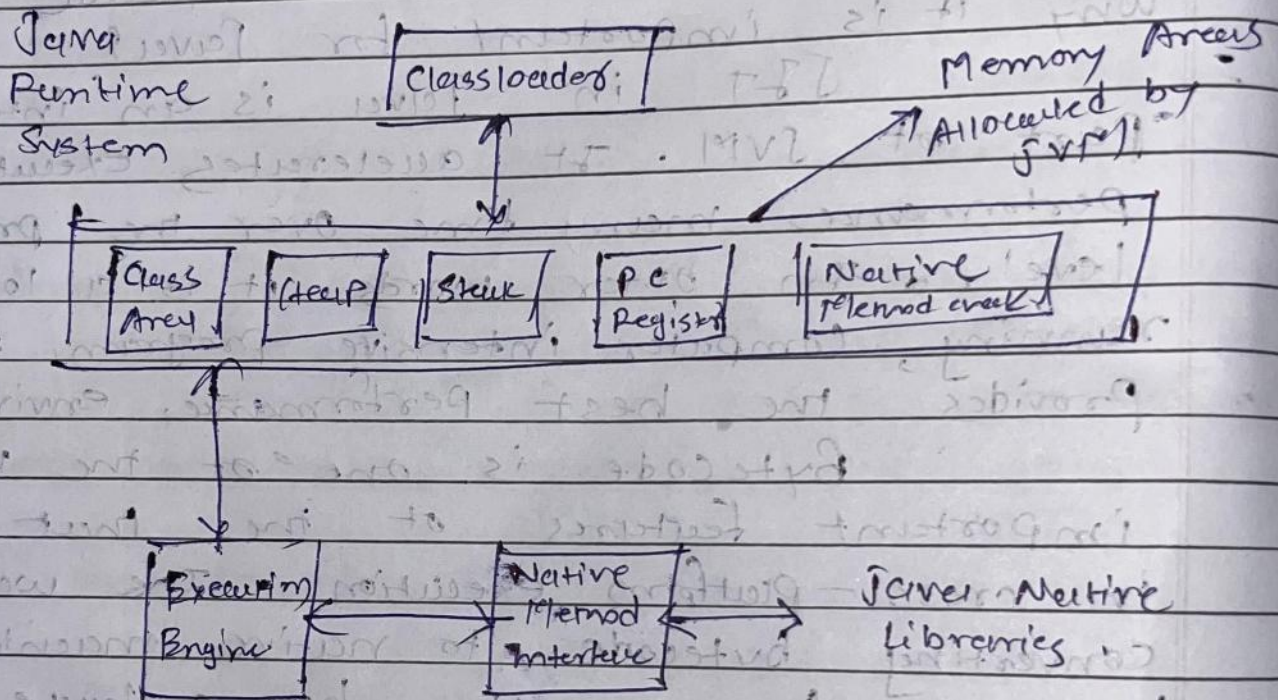 Java
Runtime
System
Classloader
Memory Areas
Allocated by
JVM
Class
Area
Heap
Stack
PC
Register
Native
Method
Execution
Engine
Native
Method
Interface
Java Native
Libraries